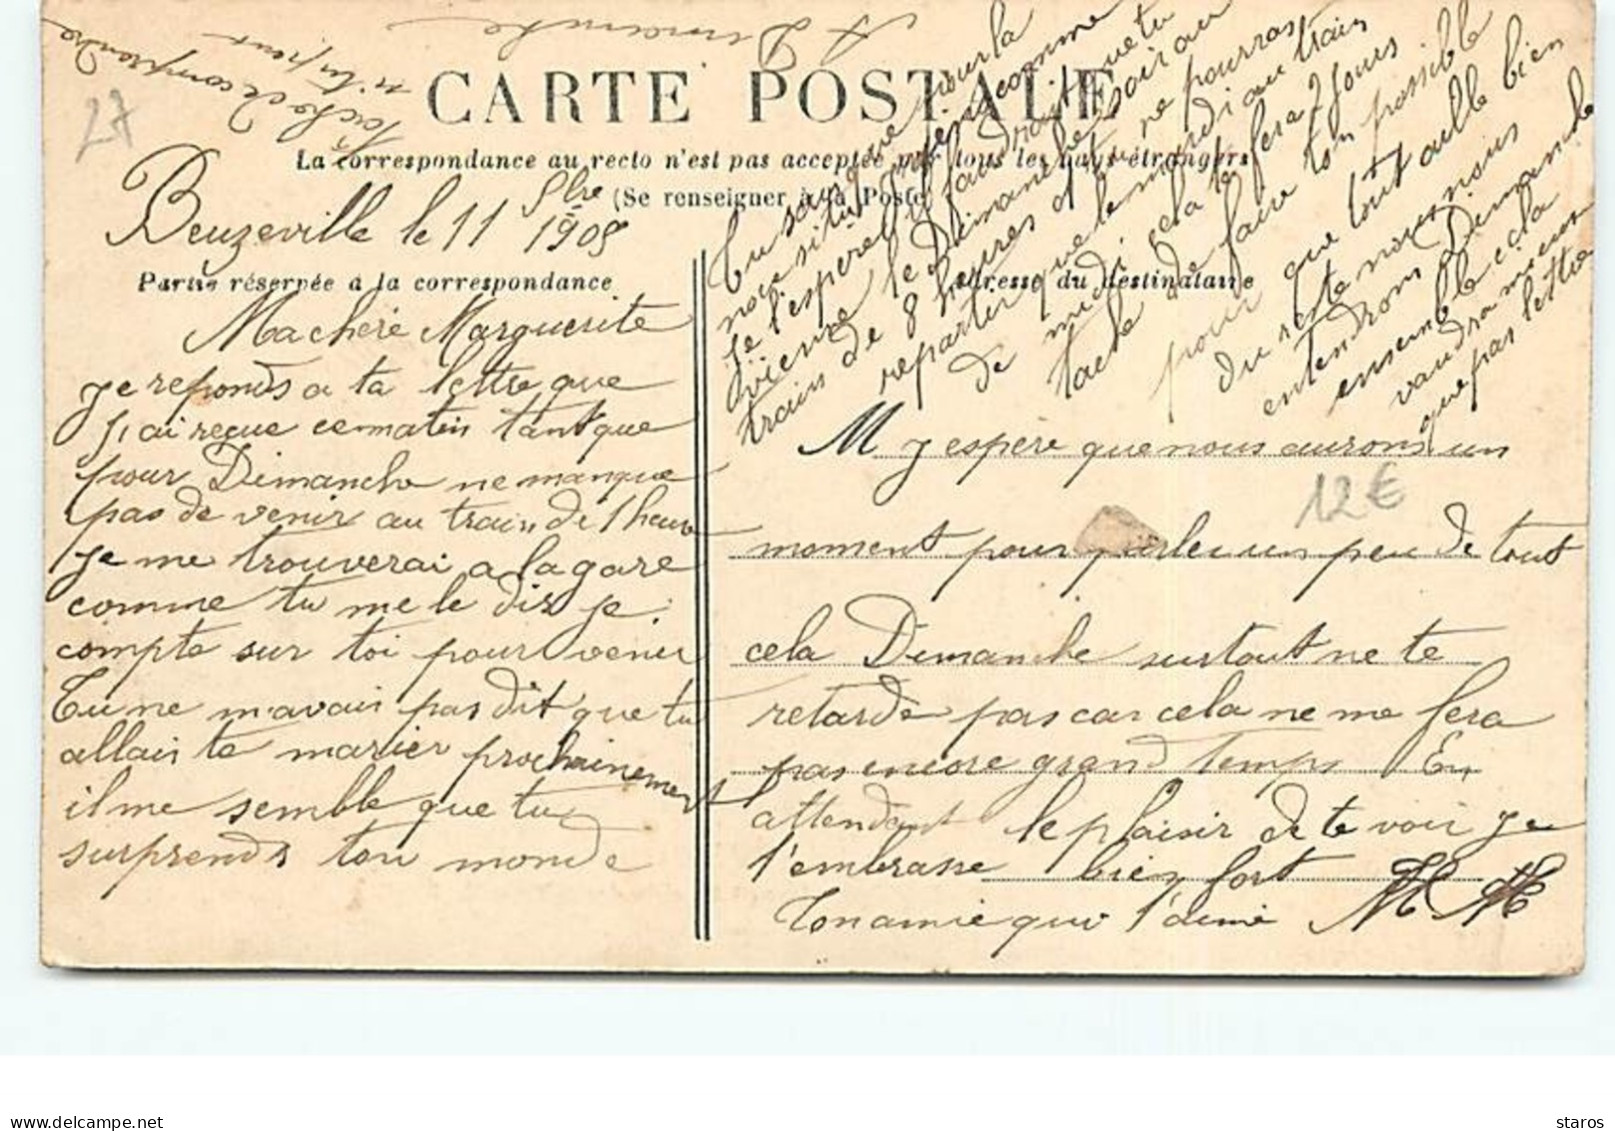 A Dimanche
Tache de comprendre
si tu peux
27
CARTE POSTALE
La correspondance au recto n'est pas acceptée par tous les pays étrangers
(Se renseigner à la Poste)
Beuzeville le 11 9bre 1905
Partie réservée à la correspondance
Adresse du destinataire
Ma chère Marguerite
je reponds a ta lettre que
j'ai reçue ce matin tant que
pour Dimanche ne manque
pas de venir au train de 1 heure
je me trouverai a la gare
comme tu me le dis je
compte sur toi pour venir
Tu ne m'avais pas dit que tu
allais te marier prochainement
il me semble que tu
surprends tou monde
M j'espère que nous aurons un
moment pour parler un peu de tout
cela Dimanche surtout ne te
retarde pas car cela ne me fera
pas encore grand temps En
attendant le plaisir de te voir je
t'embrasse bien fort
Ton amie qui t'aime M M
Tu sais que pour la
noce si tu viens comme
je l'espere il faudrait que tu
vienne le Dimanche soir au
train de 8 heures et tu ne pourras
repartir que le mardi au train
de midi cela te fera 2 jours
tache de faire ton possible
pour que tout aille bien
du reste nous nous
entendrons Dimanche
ensemble cela
vaudra mieux
que pas lettre
12€
www.delcampe.net
staros